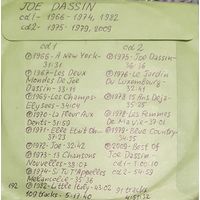 JOE DASSIN
cd1 - 1966 - 1974, 1982
cd2 - 1975 - 1979, 2009
cd 1
1966 - A New York -
31:31
1967 - Les Deux
Mondes De Joe
Dassin - 33:11
1969 - Les Champs-
Elysees - 34:04
1970 - La Fleur Aux
Dents - 31:40
1971 - Elle Etait Oh...
37:23
1972 - Joe - 32:42
1973 - 13 Chansons
Nouvelles - 38:07
1974 - Si Tu T'appelles
Melancolie - 35:36
1982 - Little Italy - 43:02
109 tracks - 5:17:40
192
cd 2
1975 - Joe Dassin -
36:16
1976 - Le Jardin
Du Luxembourg -
32:41
1978 - 15 Ans Deja -
35:35
1978 - Les Femmes
De Ma Vie - 37:01
1979 - Blue Country -
34:35
2009 - Best Of
Joe Dassin -
cd1 - 1:00:10
91 tracks
4:51:32